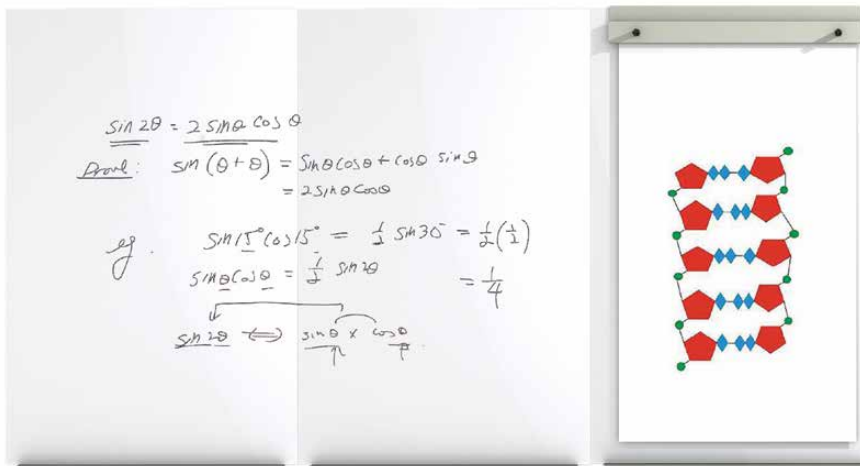 sin 2θ = 2 sinθ cos θ
Prove: sin (θ + θ) = sinθ cosθ + cosθ sinθ
= 2 sinθ cosθ
eg. sin 15° cos 15° = 1/2 sin 30° = 1/2 (1/2)
sinθ cosθ = 1/2 sin 2θ = 1/4
sin 2θ ⟺ sinθ × cosθ